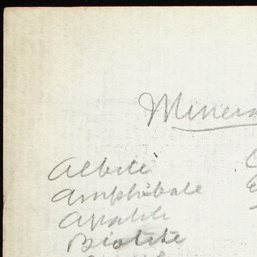 Minera
Albite
Amphibole
Apatite
Biotite